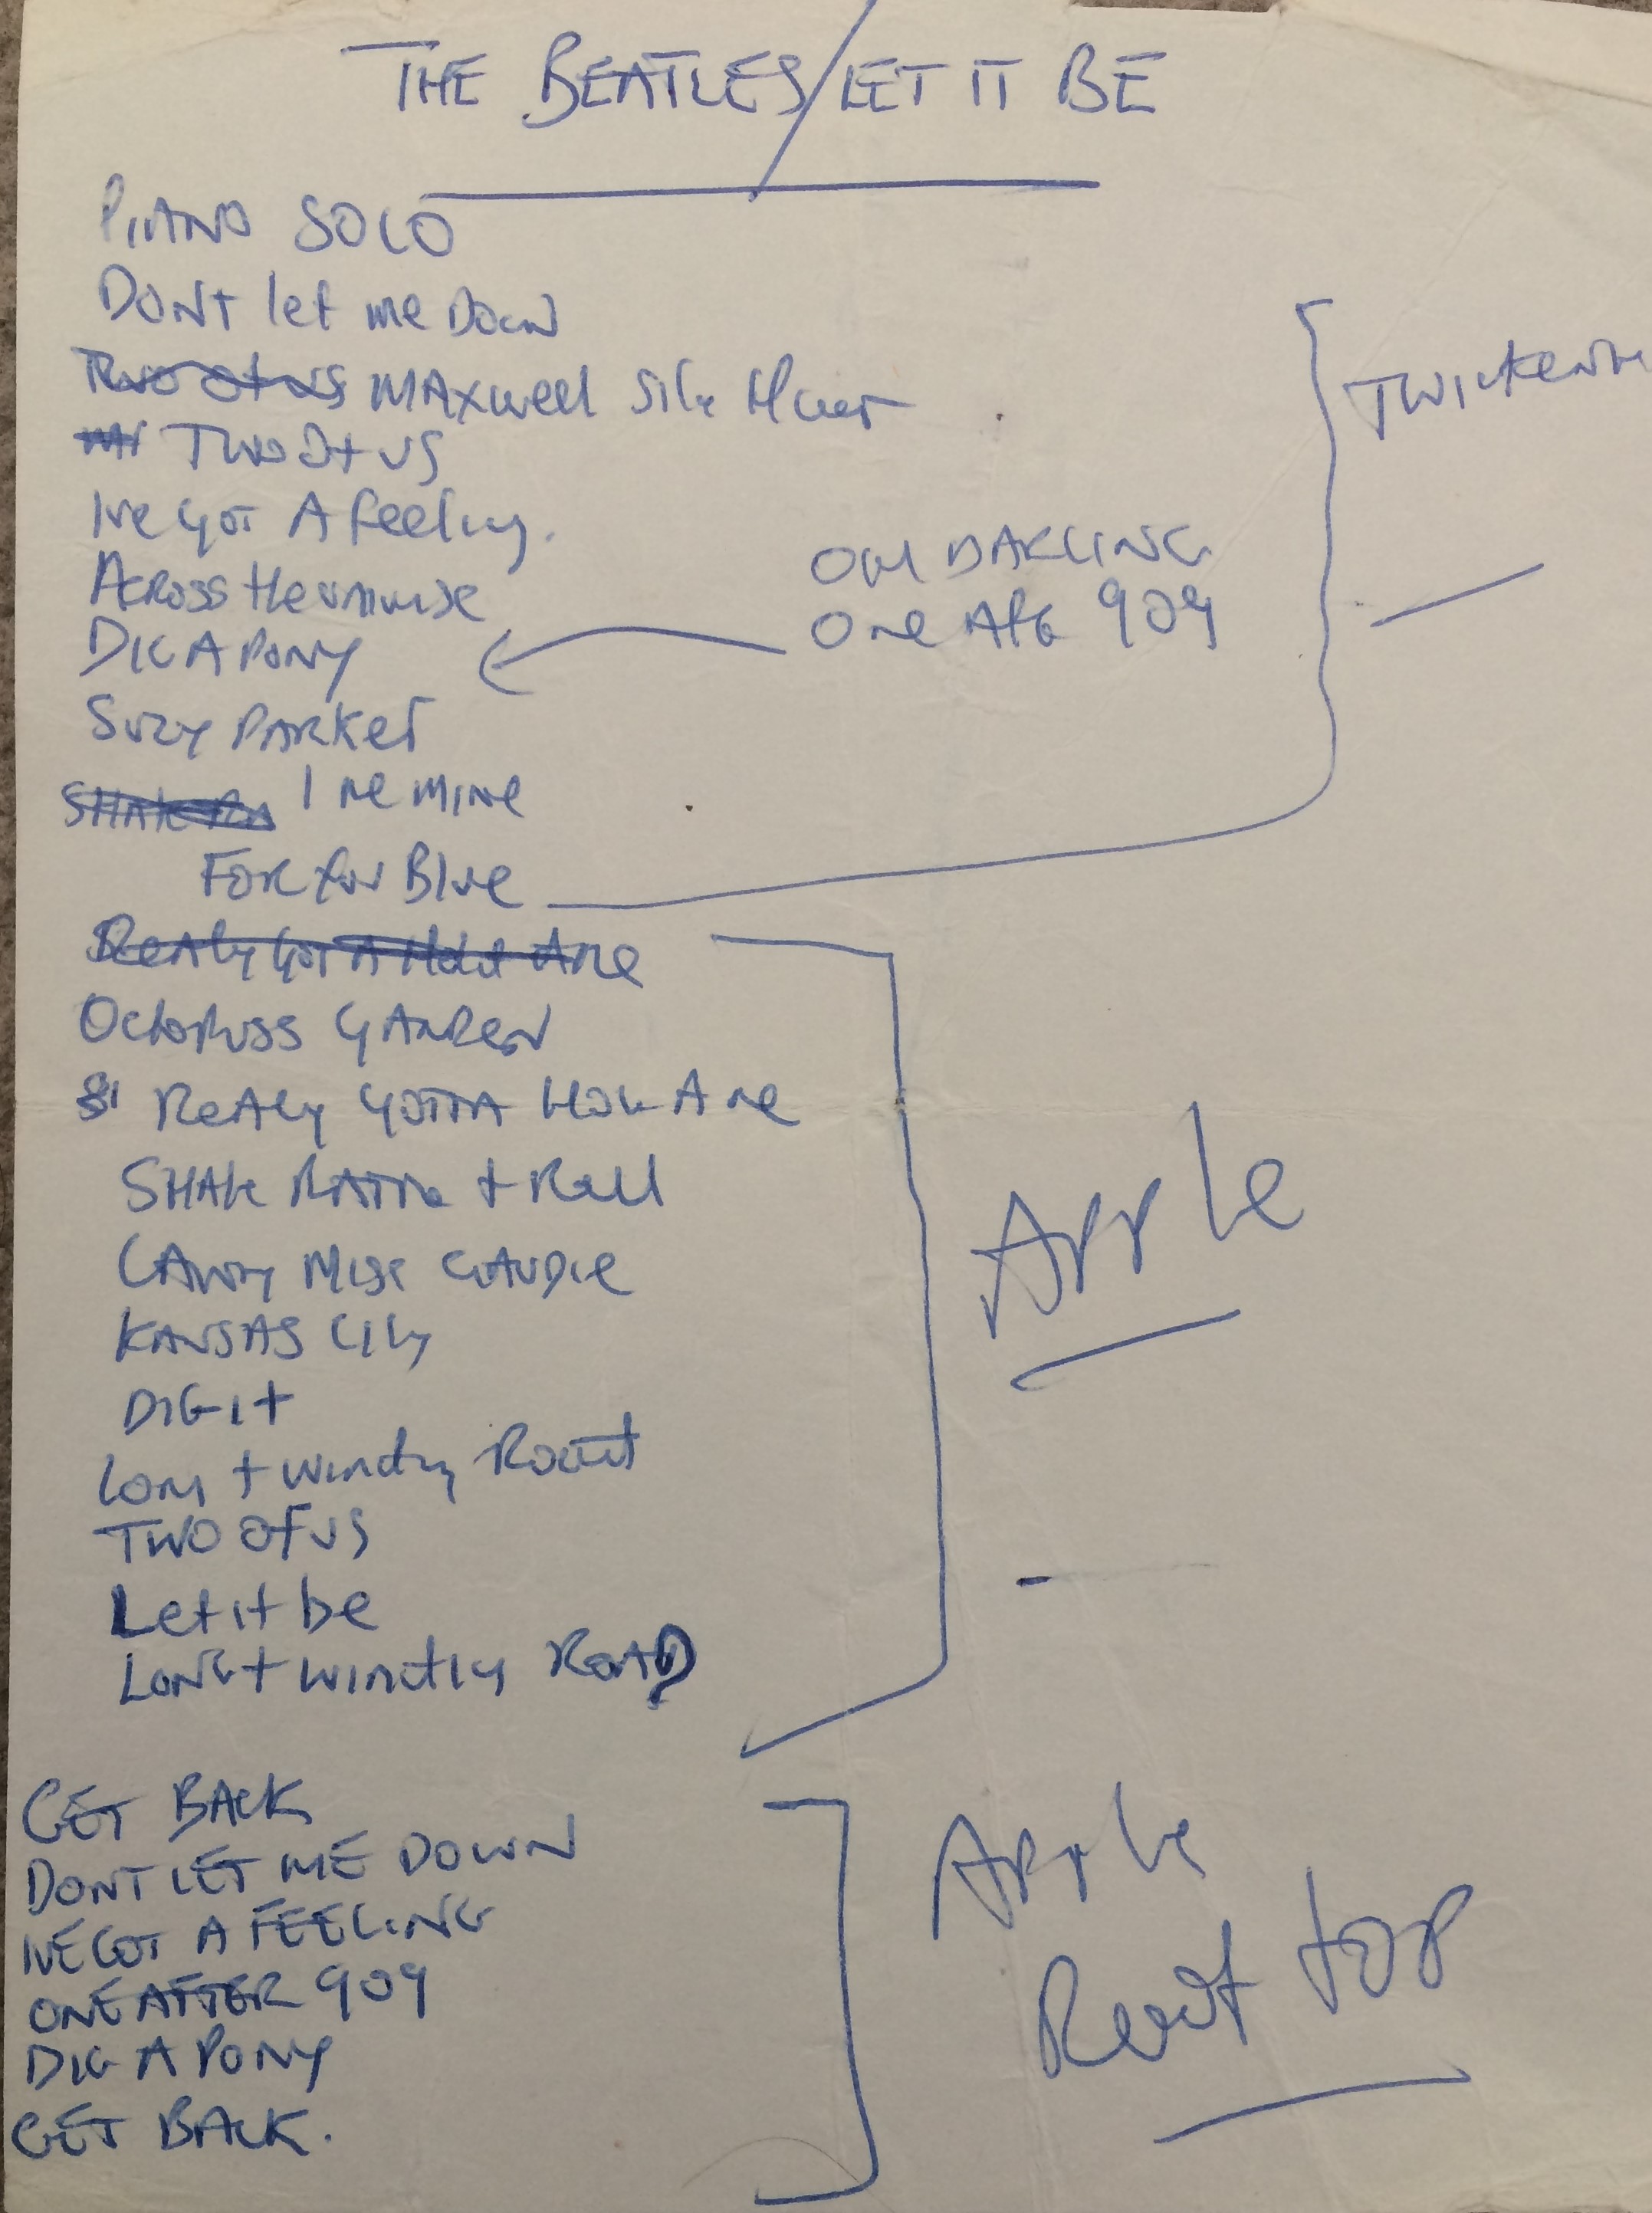 THE BEATLES/LET IT BE
PIANO SOLO
DONT let me DOWN
Two of us MAXwell Silv Hamer
TWO Of US
Ive GOT A feeling.
ACROSS the universe
OW DARLING
One Aft 909
DIG A PONY
SUZY PARKER
SHAKE I me mine
FOR You Blue
TWICKENH
Really GOT A Hold A me
OCtoPuss GARDEN
ReAly GOTTA HOL A me
SHAKE RATTle + Roll
LAWDY MISS CLAUDIE
KANSAS CIty
DIG It
Long + windy Road
TWO Of US
Let it be
LONG + windy ROAD
Apple
GET BACK
DONT LET ME DOWN
IVE GOT A FEELING
ONE AFTER 909
DIG A PONY
GET BACK.
Apple
Roof top